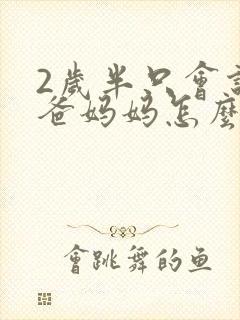 2歲半只會
爸妈妈怎麼
會跳舞的鱼